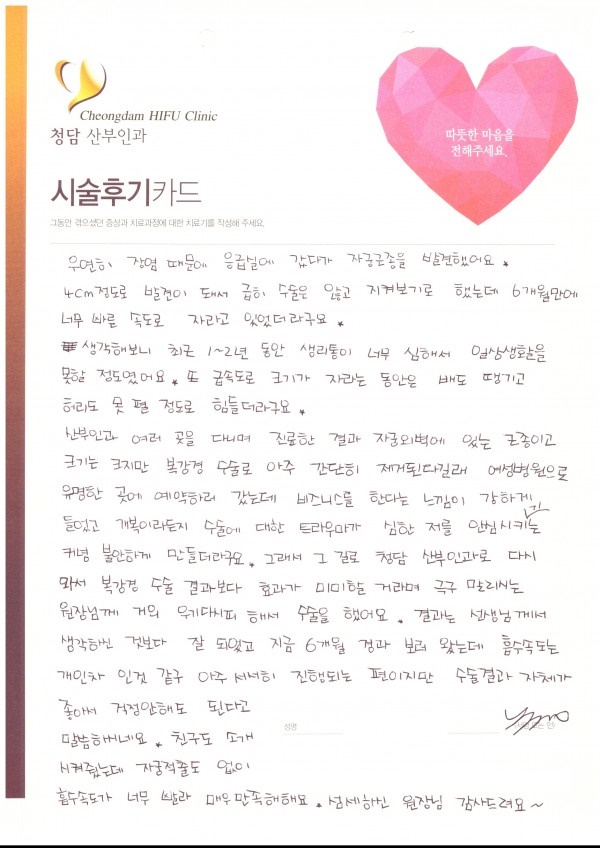 Cheongdam HIFU Clinic
청담 산부인과
따뜻한 마음을
전해주세요.
시술후기카드
그동안 겪으셨던 증상과 치료과정에 대한 치료기를 작성해 주세요.
우연히 장염 때문에 응급실에 갔다가 자궁근종을 발견했어요.
4cm정도로 발견이 돼서 급히 수술은 않고 지켜보기로 했는데 6개월만에
너무 빠른 속도로 자라고 있었더라구요.
생각해보니 최근 1~2년 동안 생리통이 너무 심해서 일상생활을
못할 정도였어요. 또 급속도로 크기가 자라는 동안은 배도 땡기고
허리도 못 펼 정도로 힘들더라구요.
산부인과 여러 곳을 다니며 진료한 결과 자궁외벽에 있는 근종이고
크기는 크지만 복강경 수술로 아주 간단히 제거된다길래 여성병원으로
유명한 곳에 예약하러 갔는데 비즈니스를 한다는 느낌이 강하게
들었고 개복이라든지 수술에 대한 트라우마가 심한 저를 안심시키기는
커녕 불안하게 만들더라구요. 그래서 그 길로 청담 산부인과로 다시
와서 복강경 수술 결과보다 효과가 미미할 거라며 극구 말리시는
원장님께 거의 우기다시피 해서 수술을 했어요. 결과는 선생님께서
생각하신 것보다 잘 되었고 지금 6개월 경과 보러 왔는데 흡수속도는
개인차 인것 같구 아주 서서히 진행되는 편이지만 수술결과 자체가
좋아서 걱정안해도 된다고
성명
말씀하시네요. 친구도 소개
시켜줬는데 자궁적출도 없이
흡수속도가 너무 빨라 매우만족해해요. 섬세하신 원장님 감사드려요~